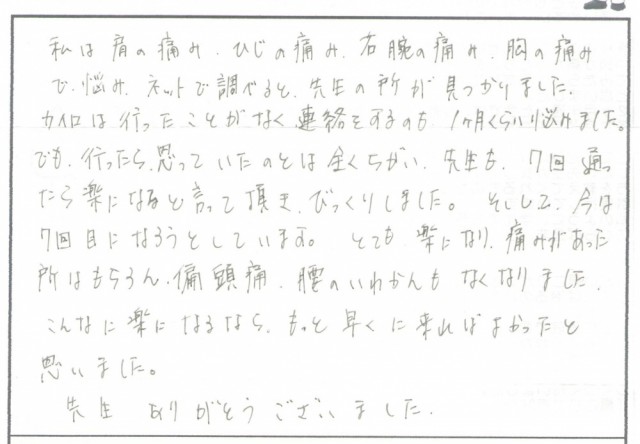 私は肩の痛み、ひじの痛み、右腕の痛み、胸の痛み
で、悩み、ネットで調べると、先生の所が見つかりました。
カイロは行ったことがなく連絡をするのも、1ヶ月くらい悩みました。
でも、行ったら、思っていたのとは全くちがい、先生も、7回通っ
たら楽になると言って頂き、びっくりしました。そして、今は
7回目になろうとしています。とても楽になり、痛みがあった
所はもちろん、偏頭痛、腰のいわかんもなくなりました。
こんなに楽になるなら、もっと早くに来ればよかったと
思いました。
先生 ありがとうございました。